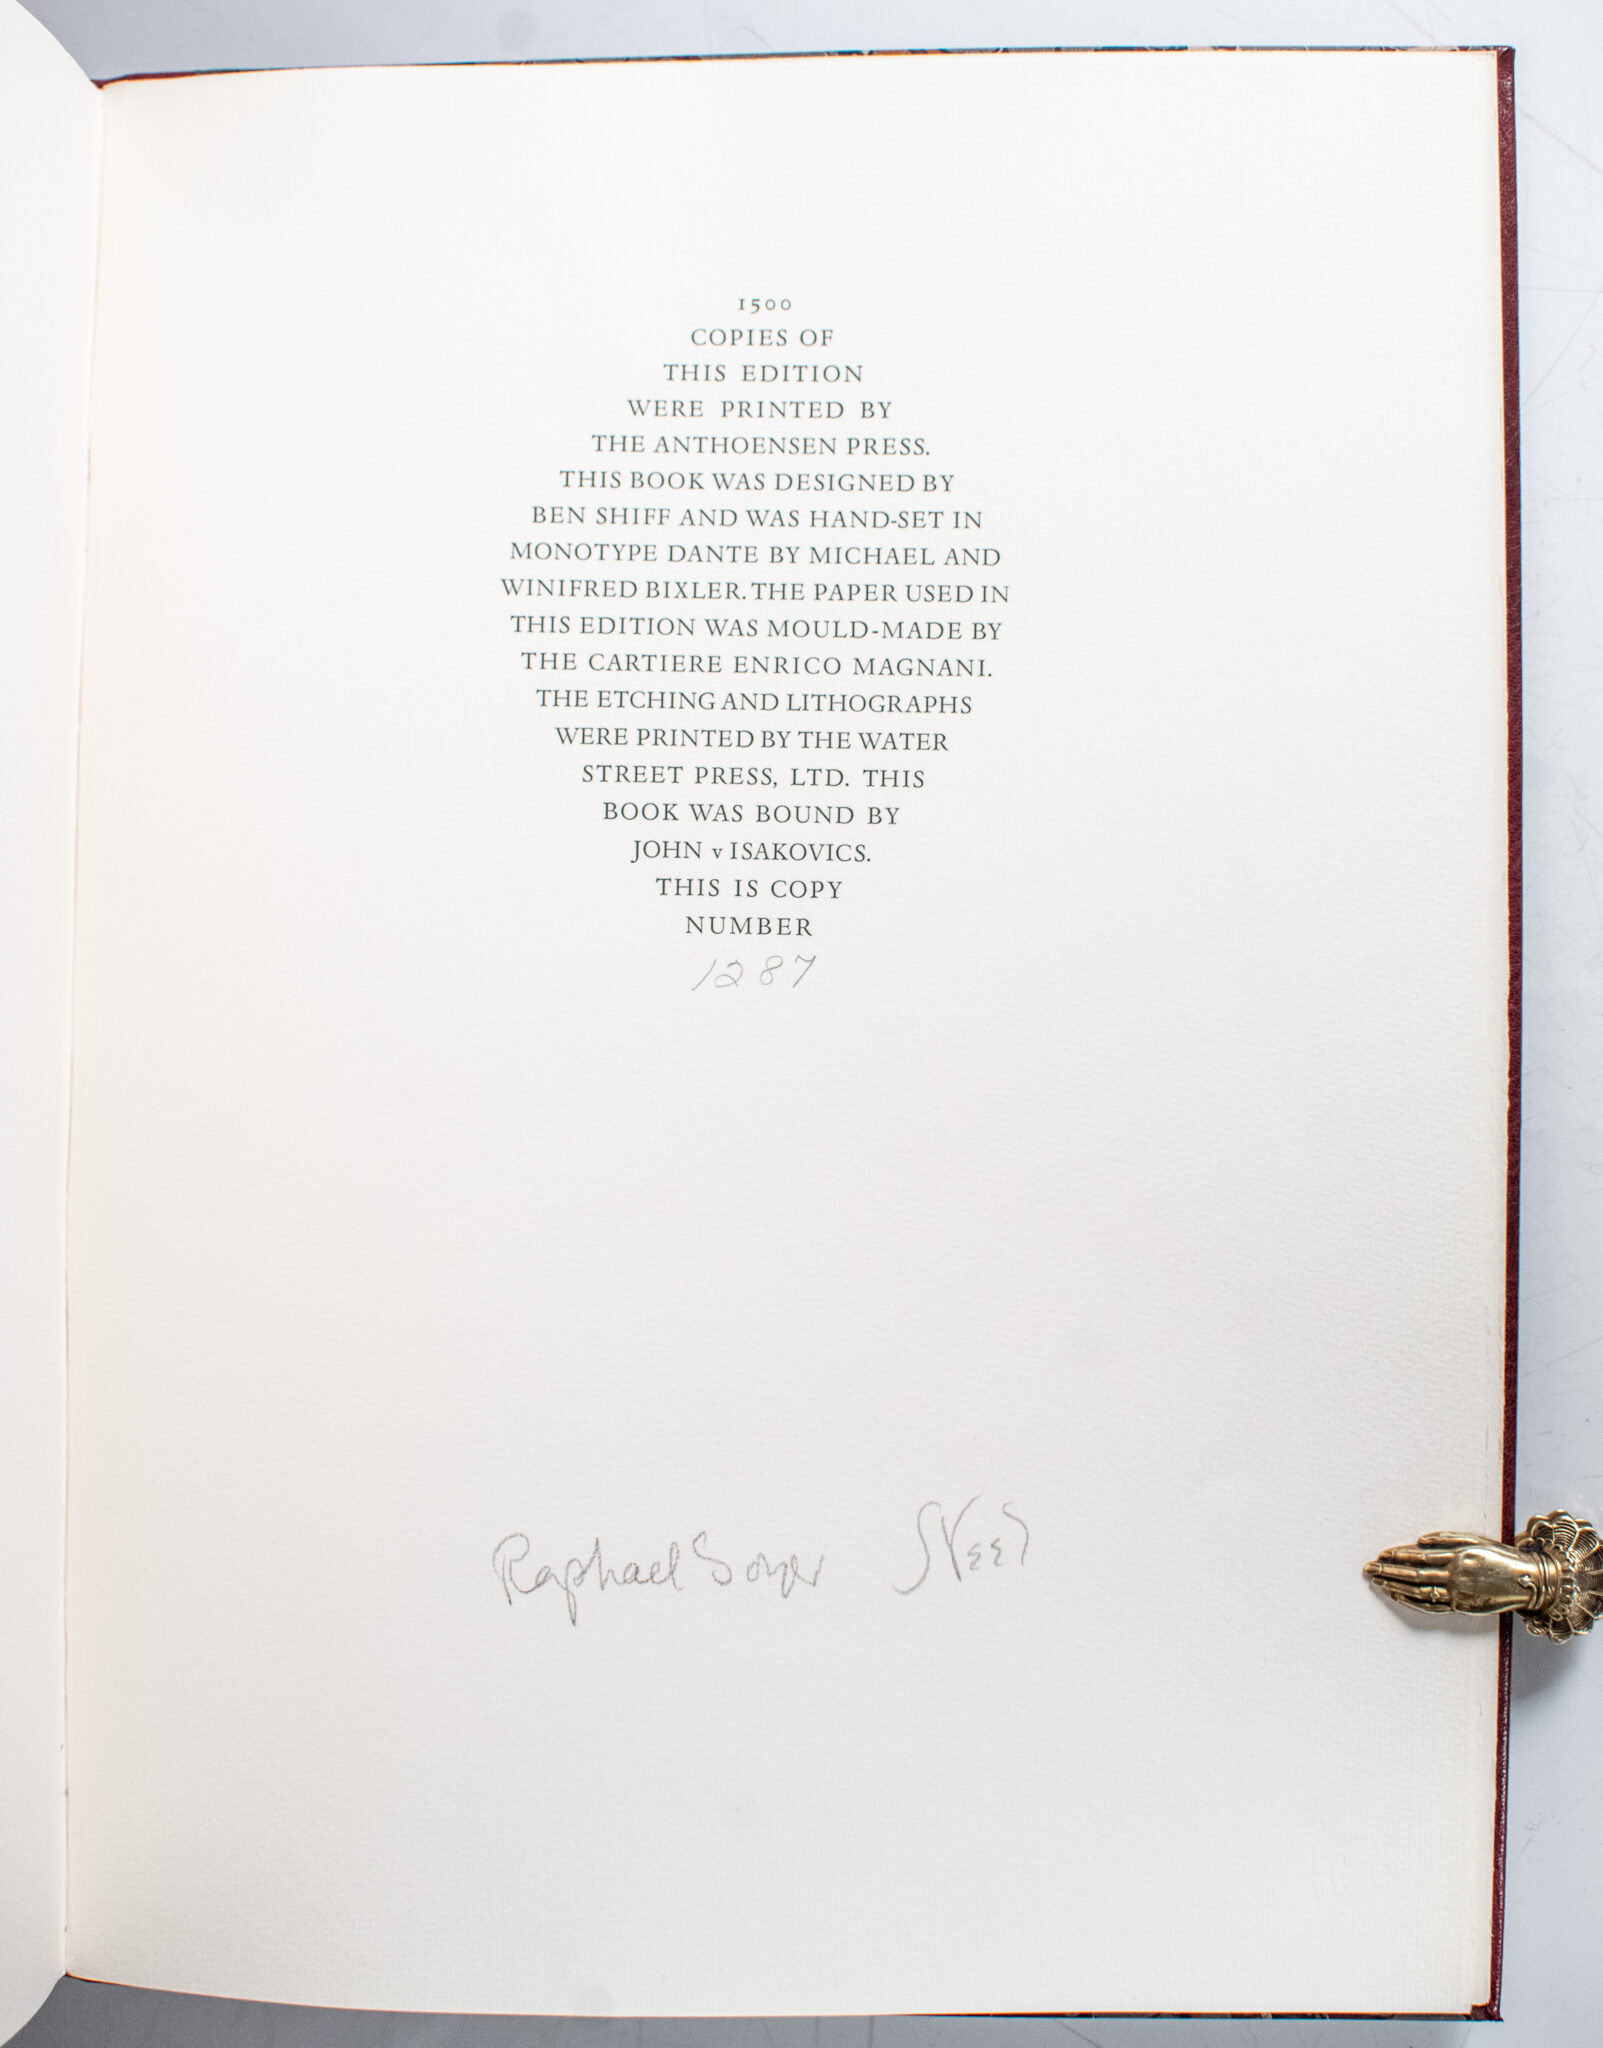 1500
COPIES OF
THIS EDITION
WERE PRINTED BY
THE ANTHOENSEN PRESS.
THIS BOOK WAS DESIGNED BY
BEN SHIFF AND WAS HAND-SET IN
MONOTYPE DANTE BY MICHAEL AND
WINIFRED BIXLER. THE PAPER USED IN
THIS EDITION WAS MOULD-MADE BY
THE CARTIERE ENRICO MAGNANI.
THE ETCHING AND LITHOGRAPHS
WERE PRINTED BY THE WATER
STREET PRESS, LTD. THIS
BOOK WAS BOUND BY
JOHN v ISAKOVICS.
THIS IS COPY
NUMBER
1287
Raphael Soyer